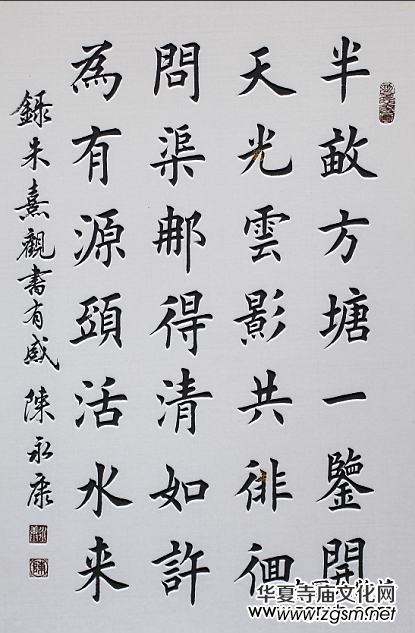 半畝方塘一鑒開
天光雲影共徘徊
問渠那得清如許
為有源頭活水来
錄朱熹觀書有感 陳永康
华夏寺庙文化网
www.zgsm.net